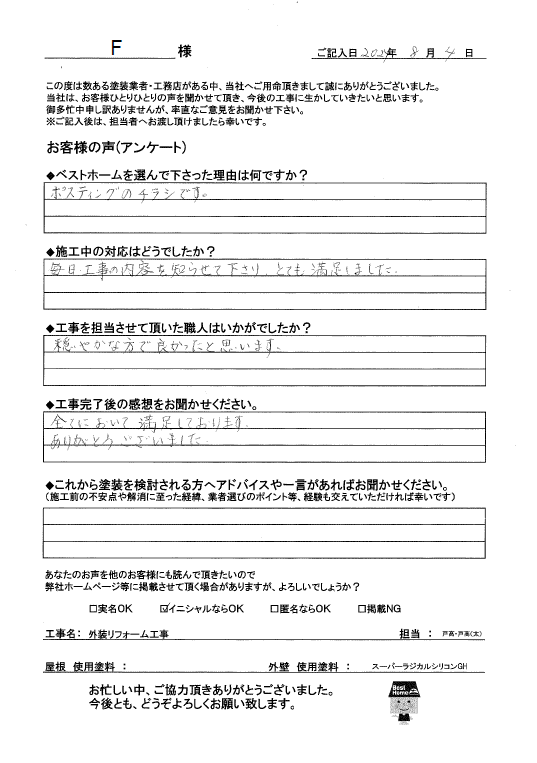 F 様
ご記入日 2024年 8 月 4 日
この度は数ある塗装業者・工務店がある中、当社へご用命頂きまして誠にありがとうございました。
当社は、お客様ひとりひとりの声を聞かせて頂き、今後の工事に生かしていきたいと思います。
御多忙中申し訳ありませんが、率直なご意見をお聞かせ下さい。
※ご記入後は、担当者へお渡し頂けましたら幸いです。
お客様の声(アンケート)
◆ベストホームを選んで下さった理由は何ですか？
ポスティングのチラシです。
◆施工中の対応はどうでしたか？
毎日工事の内容を知らせて下さり、とても満足しました。
◆工事を担当させて頂いた職人はいかがでしたか？
穏やかな方で良かったと思います。
◆工事完了後の感想をお聞かせください。
全てにおいて満足しております。
ありがとうございました。
◆これから塗装を検討される方へアドバイスや一言があればお聞かせください。
(施工前の不安点や解消に至った経緯、業者選びのポイント等、経験も交えていただければ幸いです)
あなたのお声を他のお客様にも読んで頂きたいので
弊社ホームページ等に掲載させて頂く場合がありますが、よろしいでしょうか？
□実名OK ☑イニシャルならOK □匿名ならOK □掲載NG
工事名： 外装リフォーム工事 担当 ： 戸高・戸高(太)
屋根 使用塗料 ： 外壁 使用塗料 ： スーパーラジカルシリコンGH
お忙しい中、ご協力頂きありがとうございました。
今後とも、どうぞよろしくお願い致します。
Best
Home